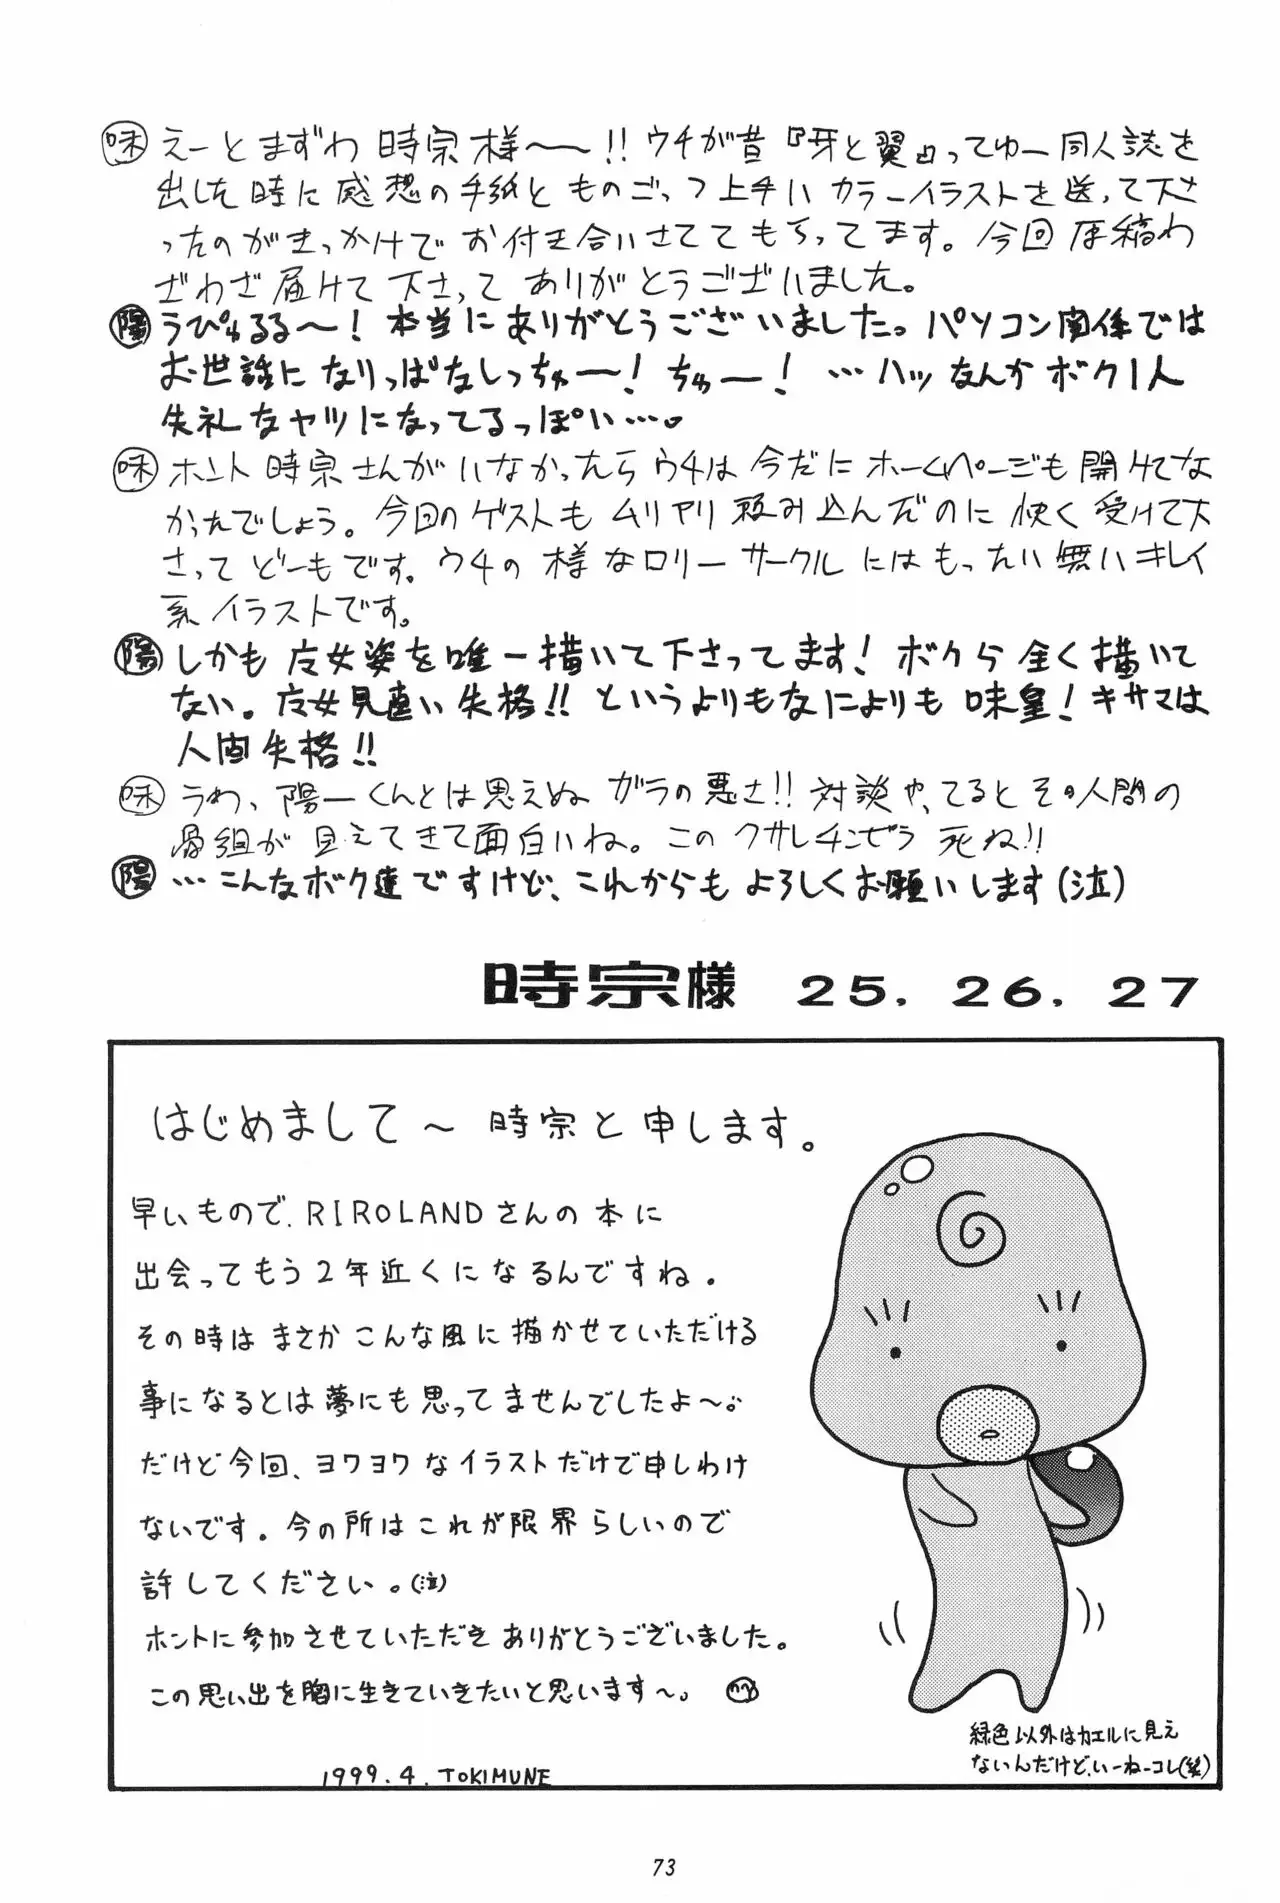 味 えーとまずわ時宗様〜!! ウチが昔『牙と翼』ってゆー同人誌を
出した時に感想の手紙とものごっつ上手いカラーイラストを送って下さ
ったのがきっかけでお付き合いさせてもらってます。今回原稿わ
ざわざ届けて下さってありがとうございました。
陽 うぴゅるる〜! 本当にありがとうございました。パソコン関係では
お世話になりっぱなしっちゅー! ちゅー! …ハッなんかボク1人
失礼なヤツになってるっぽい…。
味 ホント時宗さんがいなかったらウチは今だにホームページも開けてな
かったでしょう。今回のゲストもムリヤリ頼み込んだのに快く受けて下
さってどーもです。ウチの様なロリーサークルにはもったい無いキレイ
系イラストです。
陽 しかも庶女姿を唯一描いて下さってます! ボクら全く描いて
ない。庶女見直い失格!! というよりもなによりも味皇! キサマは
人間失格!!
味 うわ、陽一くんとは思えぬガラの悪さ!! 対談やってるとその人間の
骨組が見えてきて面白いね。このクサレチンピラ死ね!!
陽 …こんなボク達ですけど、これからもよろしくお願いします(泣)
時宗様 25. 26. 27
はじめまして〜時宗と申します。
早いもので、RIROLANDさんの本に
出会ってもう2年近くになるんですね。
その時はまさかこんな風に描かせていただける
事になるとは夢にも思ってませんでしたよ〜。
だけど今回、ヨワヨワなイラストだけで申しわけ
ないです。今の所はこれが限界らしいので
許してください。(泣)
ホントに参加させていただきありがとうございました。
この思い出を胸に生きていきたいと思います〜。
1999.4.TOKIMUNE
緑色以外はカエルに見え
ないんだけど、いーねーコレ(笑)
73